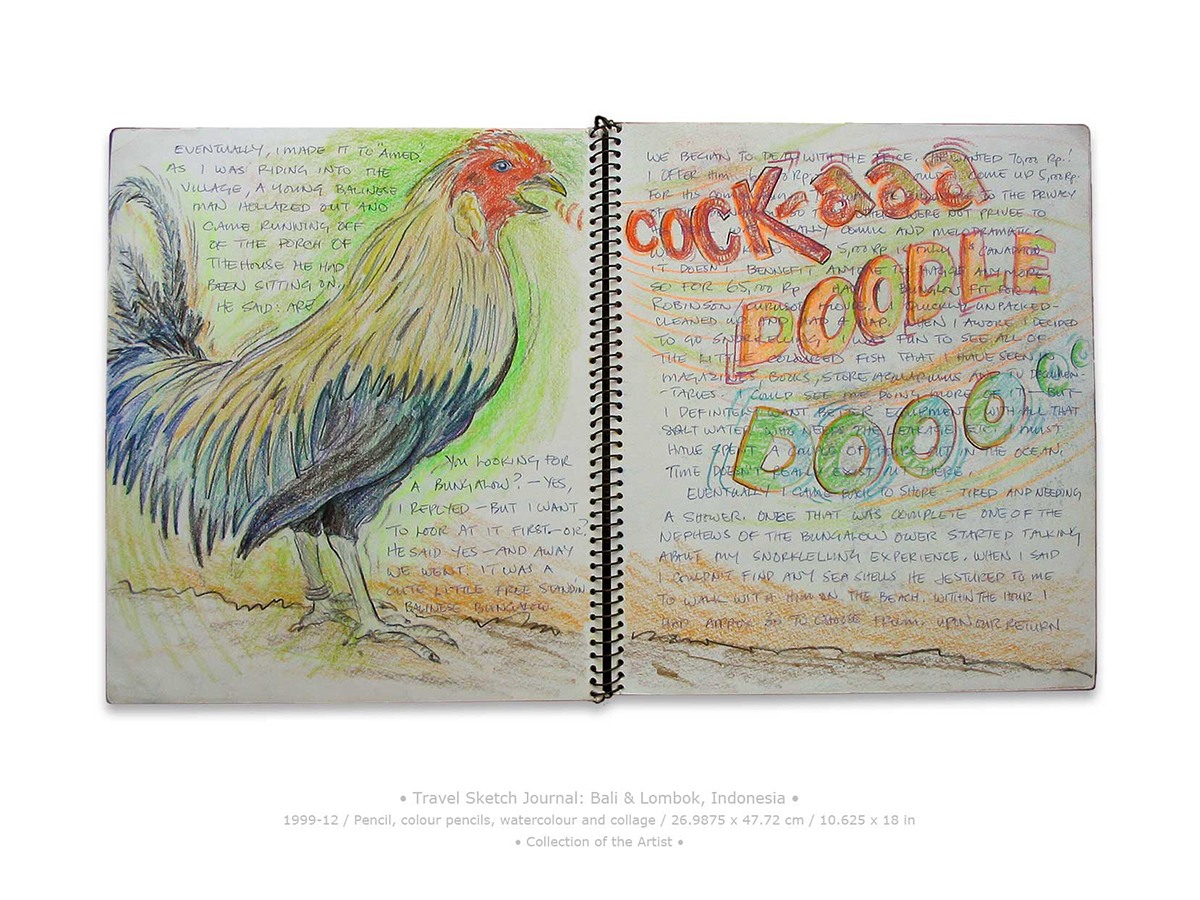 EVENTUALLY, I MADE IT TO "AIMED".
AS I WAS RIDING INTO THE
VILLAGE, A YOUNG BALINESE
MAN HOLLARED OUT AND
CAME RUNNING OFF
OF THE PORCH OF
THE HOUSE HE HAD
BEEN SITTING ON,
HE SAID: ARE
YOU LOOKING FOR
A BUNGALOW? – YES,
I REPLYED – BUT I WANT
TO LOOK AT IT FIRST – OK?
HE SAID YES – AND AWAY
WE WENT. IT WAS A
CUTE LITTLE FREE STANDIN
BALINESE BUNGALOW.
WE BEGAN TO DEAL WITH THE PRICE. HE WANTED 70,000 Rp.!
I OFFER HIM COME UP 5,000 Rp.
FOR HIS TO THE PRIVACY
WERE NOT PRIVEE TO
COMIC AND MELODRAMATIC.
5,000 Rp IS ONLY CANADIAN
IT DOESN'T BENNEFIT ANYONE TO HAGGLE ANYMORE
SO FOR 65,000 Rp I HAD A BUNGLOW FIT FOR A
ROBINSON CURUSO QUICKLY UNPACKED –
CLEANED UP AND HAD A NAP. WHEN I AWOKE I DECIDED
TO GO SNORKELLING. IT WAS FUN TO SEE ALL OF
THE LITTLE COLOURED FISH THAT I HAVE SEEN IN
MAGAZINES, BOOKS, STORE AQUARIUMS AND TV DOCUMEN-
-TARIES. I COULD SEE ME DOING MORE OF IT BUT
I DEFINITELY WANT BETTER EQUIPMENT WITH ALL THAT
SALT WATER WHO NEEDS THE LEAKAGE ETC. I MUST
HAVE SPENT A COUPLE OF HOURS OUT IN THE OCEAN.
TIME DOESN'T REALLY THERE.
EVENTUALLY I CAME BACK TO SHORE – TIRED AND NEEDING
A SHOWER. ONCE THAT WAS COMPLETE ONE OF THE
NEPHEWS OF THE BUNGALOW OWER STARTED TALKING
ABOUT MY SNORKELLING EXPERIENCE. WHEN I SAID
I COULDN'T FIND ANY SEA SHELLS HE JESTURED TO ME
TO WALK WITH HIM ON THE BEACH. WITHIN THE HOUR I
HAD APPROX 30 TO CHOOSE FROM. UPON OUR RETURN
COCK-aaa
DOODLE
DOOOooo
• Travel Sketch Journal: Bali & Lombok, Indonesia •
1999-12 / Pencil, colour pencils, watercolour and collage / 26.9875 x 47.72 cm / 10.625 x 18 in
• Collection of the Artist •